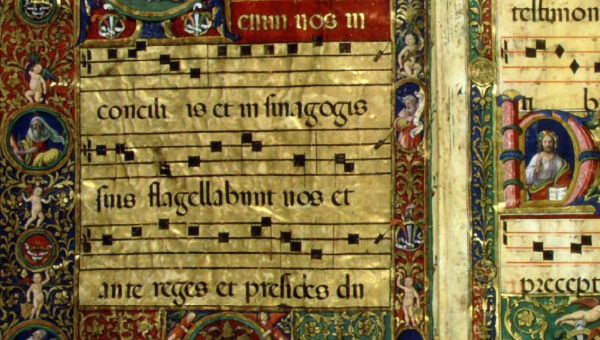 enim uos in
concili is et in sinagogis
suis flagellabunt uos et
ante reges et presides du
testimon
n b
precept